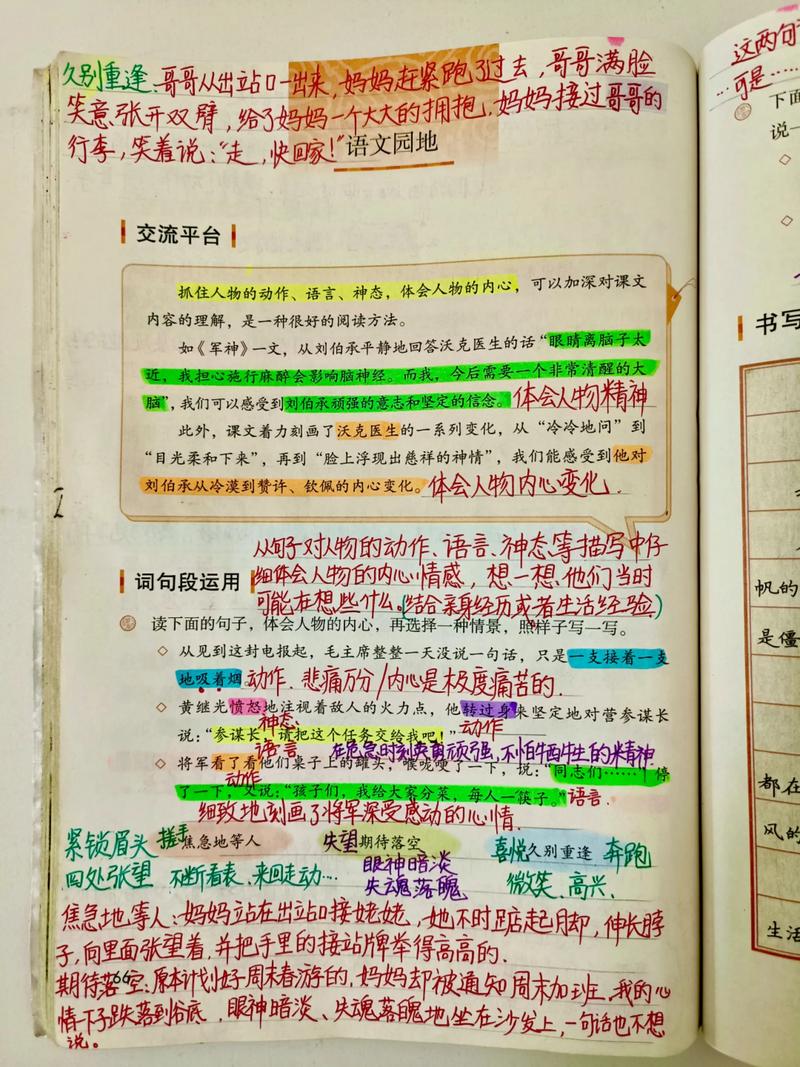 久别重逢、哥哥从出站口一出来，妈妈赶紧跑了过去，哥哥满脸
笑意张开双臂，给了妈妈一个大大的拥抱，妈妈接过哥哥的
行李，笑着说："走，快回家！"
语文园地
交流平台
抓住人物的动作、语言、神态，体会人物的内心，可以加深对课文
内容的理解，是一种很好的阅读方法。
如《军神》一文，从刘伯承平静地回答沃克医生的话“眼睛离脑子太
近，我担心施行麻醉会影响脑神经。而我，今后需要一个非常清醒的大
脑”，我们可以感受到刘伯承顽强的意志和坚定的信念。体会人物精神
此外，课文着力刻画了沃克医生的一系列变化，从“冷冷地问”到
“目光柔和下来”，再到“脸上浮现出慈祥的神情”，我们能感受到他对
刘伯承从冷漠到赞许、钦佩的内心变化。体会人物内心变化.
从句子对人物的动作、语言、神态等描写中仔
细体会人物的内心情感，想一想他们当时
可能在想些什么。(结合亲身经历或者生活经验)
词句段运用
读下面的句子，体会人物的内心，再选择一种情景，照样子写一写。
◇ 从见到这封电报起，毛主席整整一天没说一句话，只是一支接着一支
地吸着烟。动作. 悲痛万分/内心是极度痛苦的.
◇ 黄继光愤怒地注视着敌人的火力点，他转过身来坚定地对营参谋长
神态. 动作
说：“参谋长，请把这个任务交给我吧！”
语言 在危急时刻英勇顽强，不怕牺牲的精神.
◇ 将军看了看他们桌子上的罐头，喉咙哽了一下，说：“同志们……”停
动作
了一下，又说：“孩子们，我给大家分菜，每人一筷子。”语言.
细致地刻画了将军深受感动的心情.
紧锁眉头 搓手 焦急地等人 失望 期待落空 喜悦 久别重逢 奔跑
四处张望 不断看表、来回走动… 眼神暗淡 微笑、高兴.
失魂落魄
焦急地等人：妈妈站在出站口接姥姥，她不时踮起脚，伸长脖
子，向里面张望着，并把手里的接站牌举得高高的.
期待落空：原本计划好周末春游的，妈妈却被通知周末加班，我的心
66
情一下子跌落到谷底，眼神暗淡、失魂落魄地坐在沙发上，一句话也不想
说。
这两句
…可是……
下面
说一
书写
帆的
是僵
都在
风的
生活